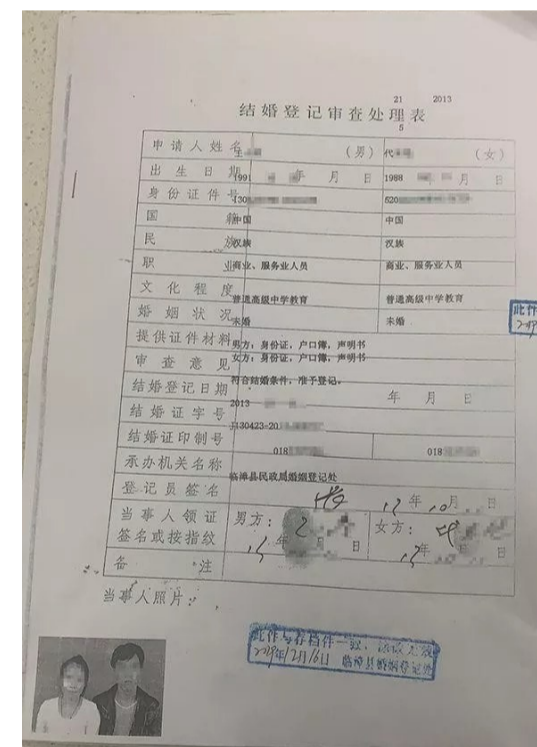 21 2013
结婚登记审查处理表
5
申请人姓名 王 (男) 代 (女)
出生日期 1991 年 月 日 1988 年 月 日
身份证件号 130 520
国籍 中国 中国
民族 汉族 汉族
职业 商业、服务业人员 商业、服务业人员
文化程度 普通高级中学教育 普通高级中学教育
婚姻状况 未婚 未婚
提供证件材料 男方:身份证,户口簿,声明书
女方:身份证,户口簿,声明书
审查意见 符合结婚条件,准予登记。
结婚登记日期 2013 年 月 日
结婚证字号 J130423-20
结婚证印制号 018 018
承办机关名称 临漳县民政局婚姻登记处
登记员签名 13年10月 日
当事人领证 男方: 女方:
签名或按指纹 13年 日 13年 日
备注
当事人照片:
此件
2019
此件与存档件一致,
2019年12月16日 临漳县婚姻登记处